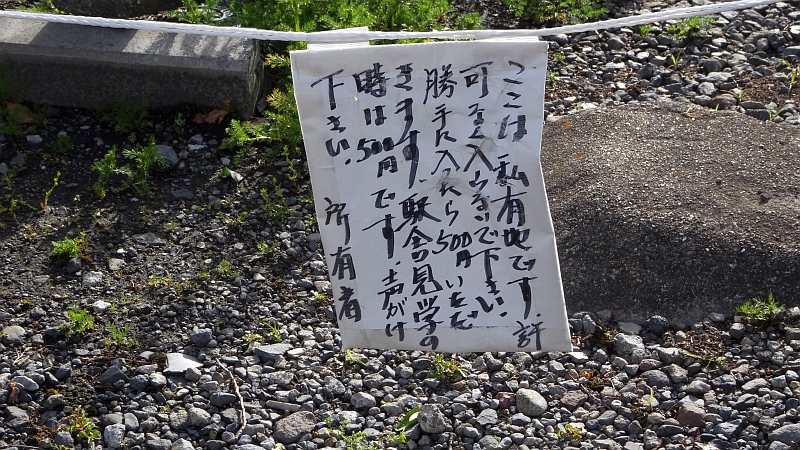 ここは私有地です。許
可なく入らないで下さい。
勝手に入ったら500円いただ
きます。駅舎の見学の
時は500円です。声がけ
下さい。 所有者